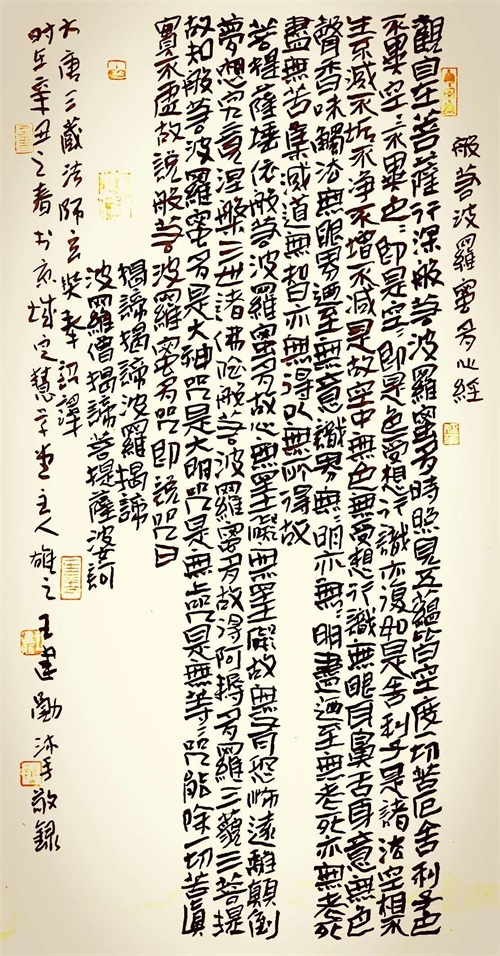 般若波羅蜜多心經
觀自在菩薩行深般若波羅蜜多時照見五蘊皆空度一切苦厄舍利子色
不異空〻不異色〻即是空〻即是色受想行識亦復如是舍利子是諸法空相不
生不滅不垢不淨不增不減是故空中無色無受想行識無眼耳鼻舌身意無色
聲香味觸法無眼界迺至無意識界無〻明亦無〻明盡迺至無老死亦無老死
盡無苦集滅道無智亦無得以無所得故
菩提薩埵依般若波羅蜜多故心無罣礙無罣礙故無有恐怖遠離顛倒
夢想究竟涅槃三世諸佛依般若波羅蜜多故得阿耨多羅三藐三菩提
故知般若波羅蜜多是大神咒是大明咒是無上咒是無等〻咒能除一切苦真
實不虛故說般若波羅蜜多咒即說咒曰
揭諦揭諦波羅揭諦
波羅僧揭諦菩提薩婆訶
大唐三藏法師玄奘奉詔譯
時在辛丑之春於京城定慧草堂主人雄之王建勳沐手敬錄